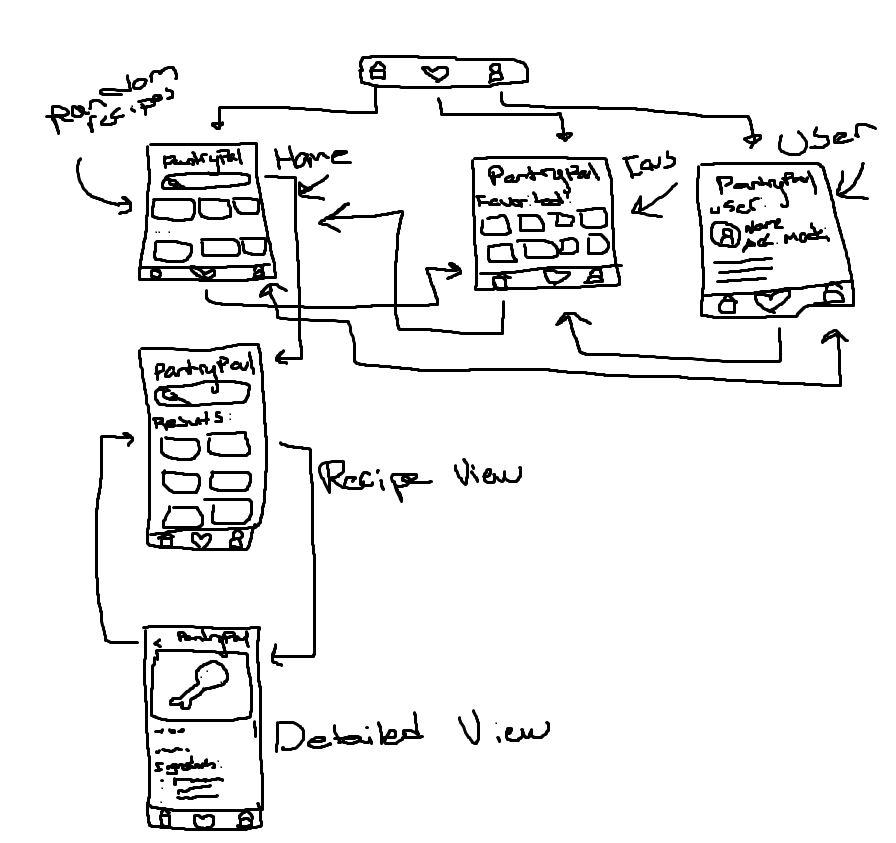 Random
recipes
PantryPal
Home
PantryPal
Favorited
Favs
User
PantryPal
User:
Name
PantryPal
Results:
Recipe View
< PantryPal
Ingredients:
Detailed View